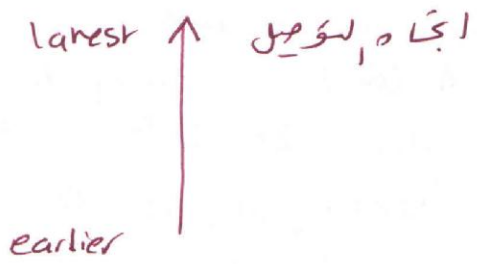 lanest
اتجاه التوصيل
earlier